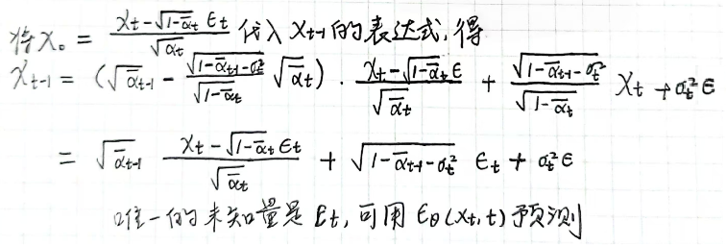 将 x₀ = \frac{x_t - \sqrt{1-\bar{α}_t} ε_t}{\sqrt{\bar{α}_t}} 代入 x_{t-1} 的表达式, 得
x_{t-1} = (\sqrt{\bar{α}_{t-1}} - \frac{\sqrt{1-\bar{α}_{t-1}-σ_t^2}}{\sqrt{1-\bar{α}_t}} \sqrt{\bar{α}_t}) · \frac{x_t - \sqrt{1-\bar{α}_t} ε}{\sqrt{\bar{α}_t}} + \frac{\sqrt{1-\bar{α}_{t-1}-σ_t^2}}{\sqrt{1-\bar{α}_t}} x_t + σ_t^2 ε
= \sqrt{\bar{α}_{t-1}} \frac{x_t - \sqrt{1-\bar{α}_t} ε_t}{\sqrt{\bar{α}_t}} + \sqrt{1-\bar{α}_{t-1}-σ_t^2} ε_t + σ_t^2 ε
唯一的未知量是 ε_t, 可用 ε_θ(x_t, t) 预测